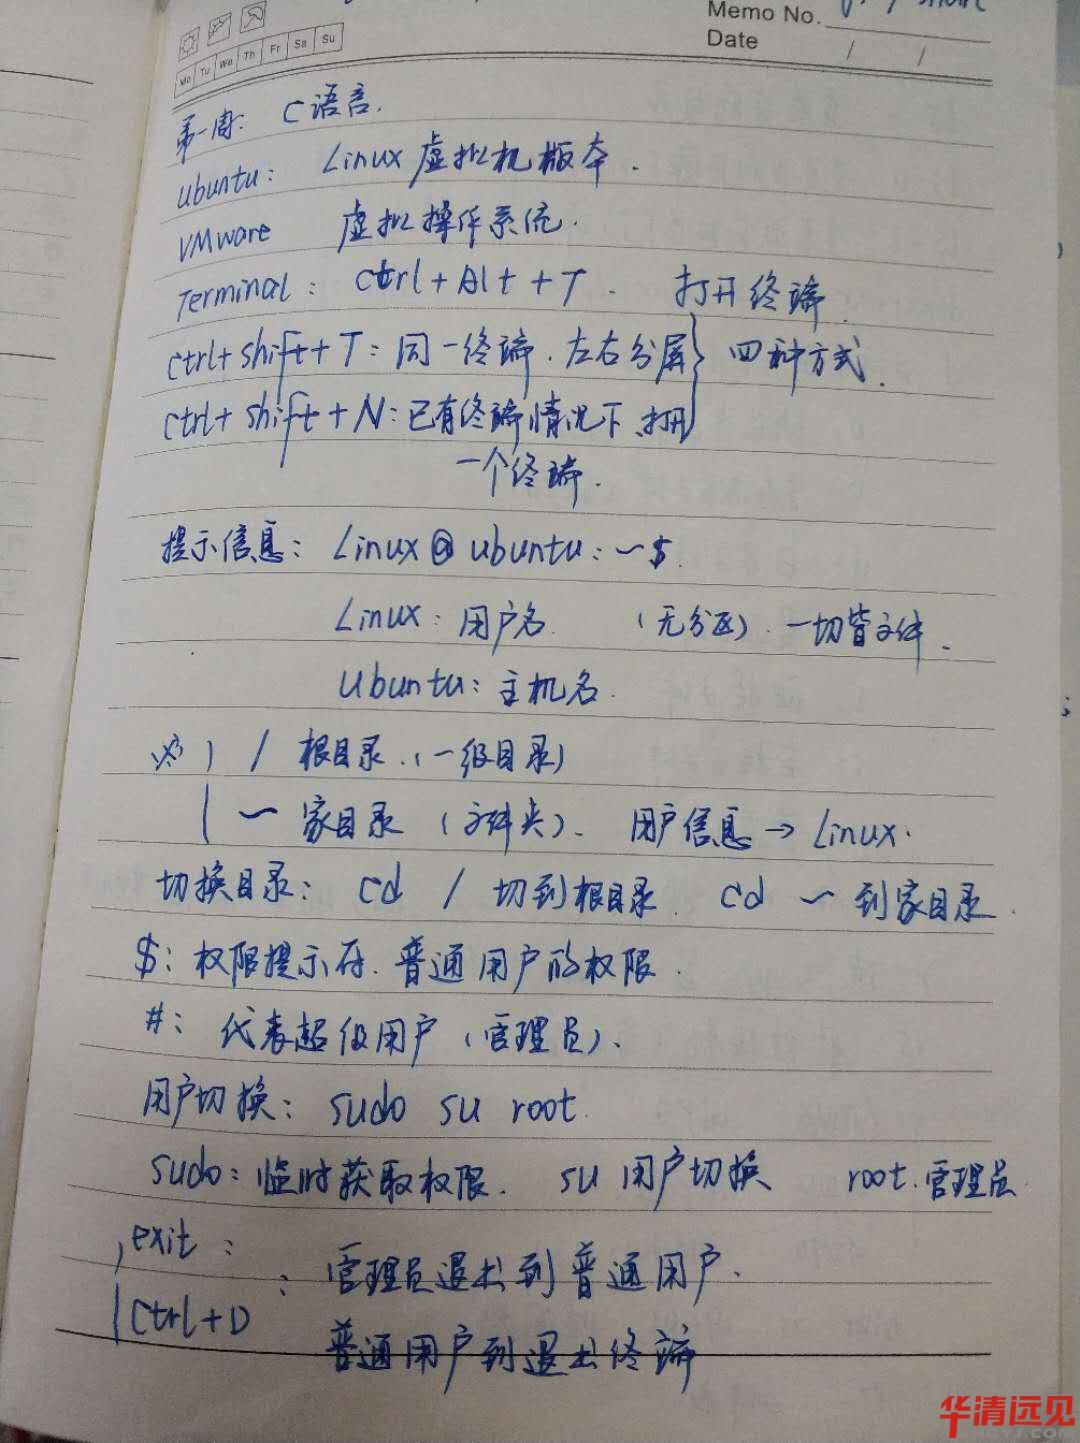 Memo No.
Date / /
Mo Tu We Th Fr Sa Su
第一周: C语言.
ubuntu: Linux虚拟机版本.
VMware 虚拟操作系统.
Terminal: Ctrl+Alt+T. 打开终端.
ctrl+shift+T:同一终端.左右分屏 四种方式.
ctrl+shift+N:已有终端情况下.打开
一个终端.
提示信息: Linux@ubuntu:~$.
Linux:用户名. (无分区).一切皆文件.
Ubuntu:主机名.
/ 根目录.(一级目录)
~ 家目录(文件夹). 用户信息→Linux.
切换目录: cd / 切到根目录. cd ~ 到家目录.
$:权限提示符.普通用户的权限.
#: 代表超级用户(管理员).
用户切换: sudo su root.
sudo:临时获取权限. su 用户切换 root.管理员.
exit:
: 管理员退出到普通用户.
Ctrl+D
普通用户到退出终端
华清远见
HQYJ.COM